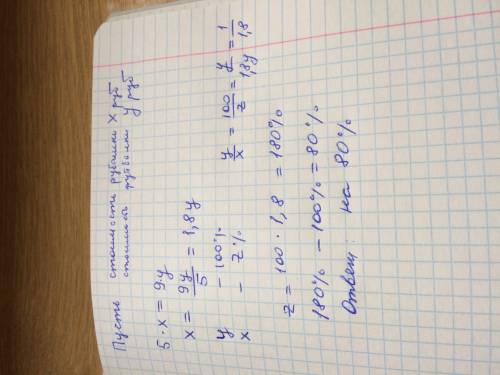 Пусть стоимость рубашки х руб
стоимость футболки у руб
5 · x = 9y
x = 9y/5 = 1,8y
y – 100%
x – z%
y/x = 100/z = y/1,8y = 1/1,8
z = 100 · 1,8 = 180%
180% – 100% = 80%
Ответ: на 80%